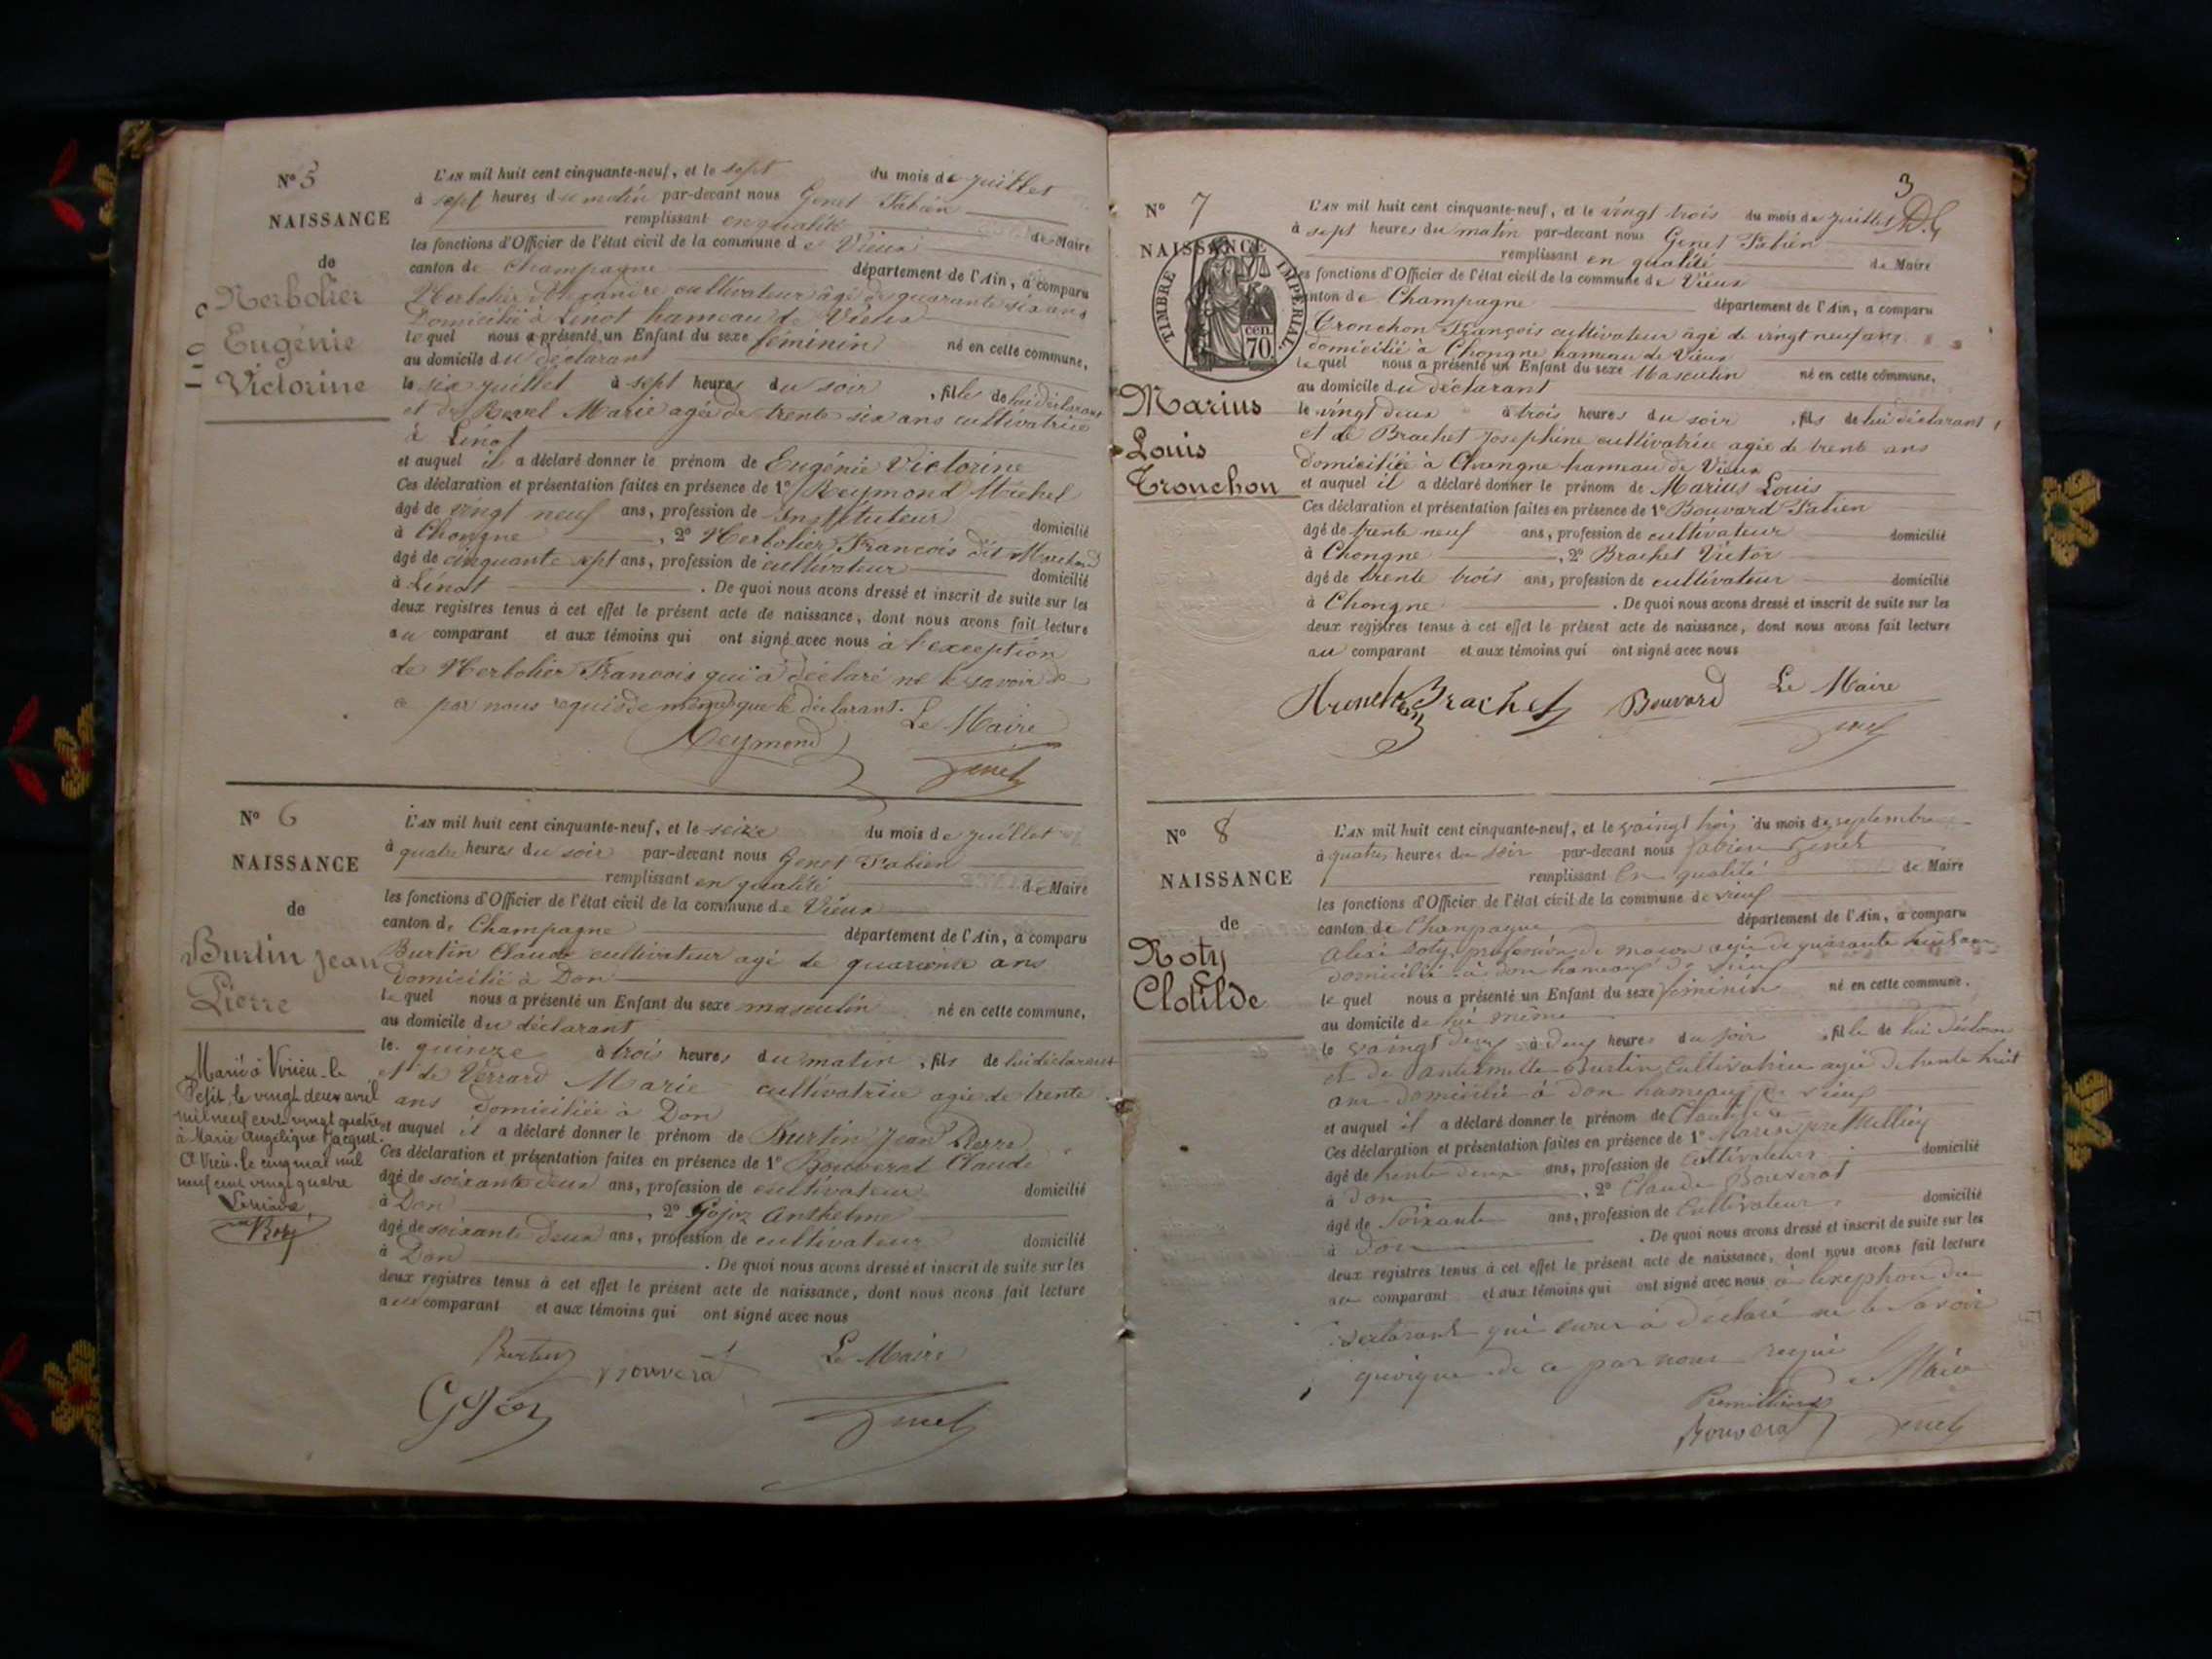 N° 5
NAISSANCE
de
Herbolier
Eugénie
Victorine
L'AN mil huit cent cinquante-neuf, et le sept du mois de juillet
à sept heures du matin par-devant nous Genet Fabien
remplissant en qualité de Maire
les fonctions d'Officier de l'état civil de la commune de Vieux
canton de Champagne département de l'Ain, a comparu
Herbolier Alexandre cultivateur âgé de quarante six ans
Domicilié à Linot hameau de Vieux
lequel nous a présenté un Enfant du sexe féminin né en cette commune,
au domicile du déclarant
le six juillet à sept heures du soir, fille de lui déclarant
et de Revel Marie agée de trente six ans cultivatrice
à Linot
et auquel il a déclaré donner le prénom de Eugénie Victorine
Ces déclaration et présentation faites en présence de 1° Reymond Michel
âgé de vingt neuf ans, profession de Instituteur domicilié
à Chongne, 2° Herbolier François dit
âgé de cinquante sept ans, profession de cultivateur domicilié
à Linot. De quoi nous avons dressé et inscrit de suite sur les
deux registres tenus à cet effet le présent acte de naissance, dont nous avons fait lecture
au comparant et aux témoins qui ont signé avec nous à l'exception
de Herbolier François qui a déclaré ne le savoir de
ce par nous requis de même que le déclarant. Le Maire
Reymond Genet
N° 6
NAISSANCE
de
Burtin Jean
Pierre
Marié à Virieu-le
Petit le vingt deux avril
mil neuf cent vingt quatre
à Marie Angélique Jacquet.
A Vieu. le cinq mai mil
neuf cent vingt quatre
Le Maire
L'AN mil huit cent cinquante-neuf, et le seize du mois de juillet
à quatre heures du soir par-devant nous Genet Fabien
remplissant en qualité de Maire
les fonctions d'Officier de l'état civil de la commune de Vieux
canton de Champagne département de l'Ain, a comparu
Burtin Claude cultivateur agé de quarante ans
domicilié à Don
lequel nous a présenté un Enfant du sexe masculin né en cette commune,
au domicile du déclarant
le quinze à trois heures du matin, fils de lui déclarant
et de Verrard Marie cultivatrice agée de trente
ans domiciliée à Don
et auquel il a déclaré donner le prénom de Burtin Jean Pierre
Ces déclaration et présentation faites en présence de 1° Bouverat Claude
âgé de soixante deux ans, profession de cultivateur domicilié
à Don, 2° Gojoz Anthelme
âgé de soixante deux ans, profession de cultivateur domicilié
à Don. De quoi nous avons dressé et inscrit de suite sur les
deux registres tenus à cet effet le présent acte de naissance, dont nous avons fait lecture
au comparant et aux témoins qui ont signé avec nous
Burtin Bouverat Le Maire
Gojoz Genet
3
N° 7
NAISSANCE
TIMBRE IMPÉRIAL
cen.
70
Marius
Louis
Tronchon
L'AN mil huit cent cinquante-neuf, et le vingt trois du mois de juillet
à sept heures du matin par-devant nous Genet Fabien
remplissant en qualité de Maire
les fonctions d'Officier de l'état civil de la commune de Vieux
canton de Champagne département de l'Ain, a comparu
Tronchon François cultivateur âgé de vingt neuf ans
domicilié à Chongne hameau de Vieux
lequel nous a présenté un Enfant du sexe Masculin né en cette commune,
au domicile du déclarant
le vingt deux à trois heures du soir, fils de lui déclarant
et de Brachet Josephine cultivatrice agée de trente ans
domiciliée à Chongne hameau de Vieux
et auquel il a déclaré donner le prénom de Marius Louis
Ces déclaration et présentation faites en présence de 1° Bouvard Fabien
âgé de trente neuf ans, profession de cultivateur domicilié
à Chongne, 2° Brachet Victor
âgé de trente trois ans, profession de cultivateur domicilié
à Chongne. De quoi nous avons dressé et inscrit de suite sur les
deux registres tenus à cet effet le présent acte de naissance, dont nous avons fait lecture
au comparant et aux témoins qui ont signé avec nous
Brachet Bouvard Le Maire
Genet
N° 8
NAISSANCE
de
Roty
Clotilde
L'AN mil huit cent cinquante-neuf, et le vaingt trois du mois de septembre
à quatres heures du soir par-devant nous fabien Genet
remplissant en qualité de Maire
les fonctions d'Officier de l'état civil de la commune de vieux
canton de Champagne département de l'Ain, a comparu
Alexi Roty profession de maçon agée de quarante huit ans
domicilié à don hameaux de vieux
lequel nous a présenté un Enfant du sexe féminin né en cette commune.
au domicile de lui même
le vaingt deux à deux heures du soir, fille de lui déclarant
et de Anthelmette Burtin Cultivatrice agée de trente huit
ans domicilié à don hameaux de vieux
et auquel il a déclaré donner le prénom de
Ces déclaration et présentation faites en présence de 1° Marin
âgé de trente deux ans, profession de Cultivateur domicilié
à don, 2° Claude Bouverat
âgé de Soixante ans, profession de Cultivateur domicilié
à don. De quoi nous avons dressé et inscrit de suite sur les
deux registres tenus à cet effet le présent acte de naissance, dont nous avons fait lecture
au comparant et aux témoins qui ont signé avec nous à lexephon du
declarant qui a declaré ne le savoir
quoique de ce par nous requi
Le Maire
Bouverat Genet